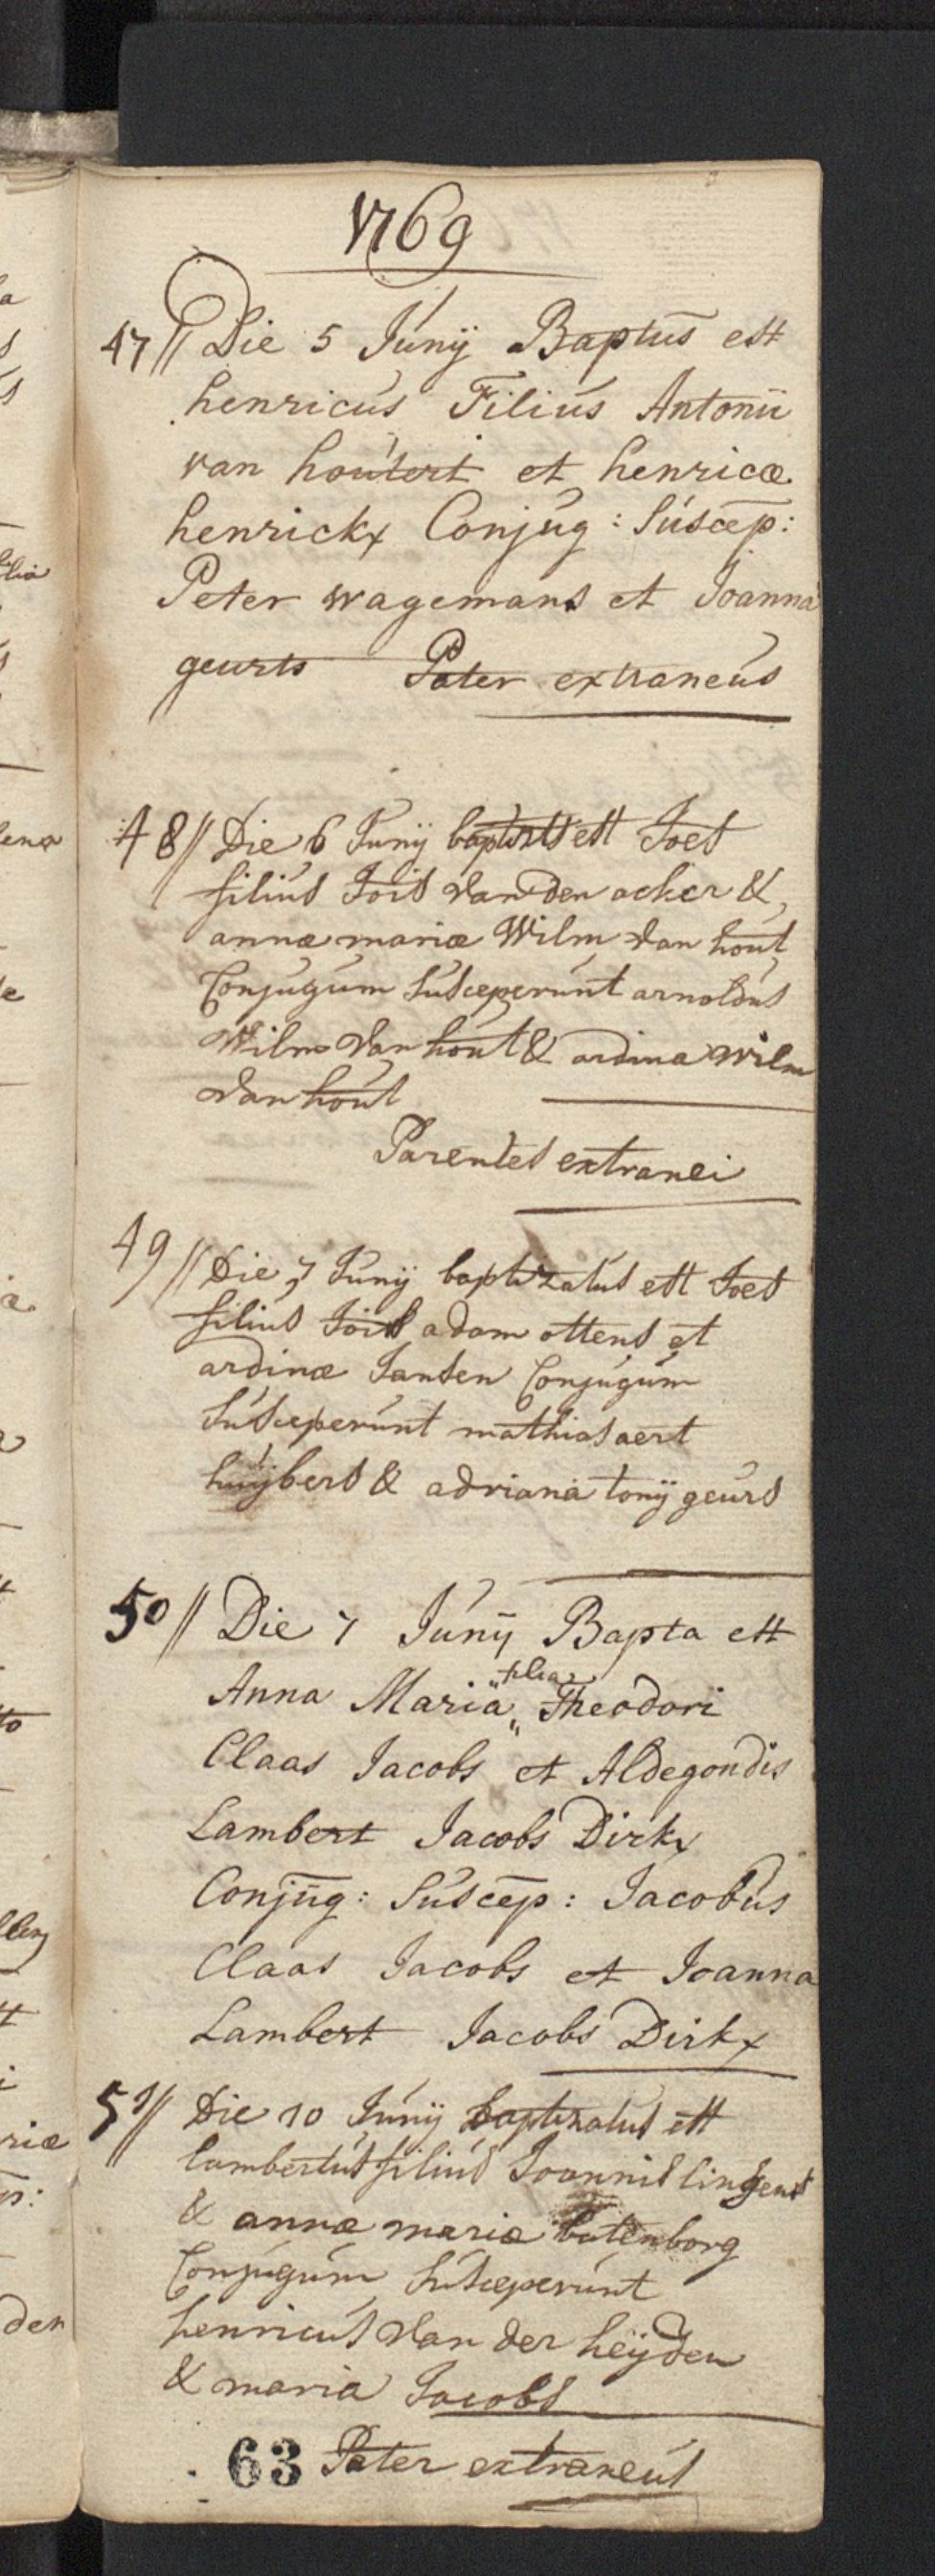 1769
47// Die 5 Junÿ Baptus est
henricus Filius Antonii
van houtert et henricæ
henrickx Conjug: Suscep:
Peter wagemans et Joanna
geurts Pater extraneus
48// Die 6 Junÿ baptizts est Joes
filius Jois Van den acker &
annæ mariæ Wilm van hout
Conjugum Susceperunt arnoldus
Wilm Van hout & ardina wilm
Van hout
Parentes extranei
49 // Die 7 Junÿ baptizatus est Joes
filius Jois adam ottens et
ardinæ Jansen Conjugum
Susceperunt mathias aert
huÿbers & adriana tonÿ geurs
50 // Die 7 Junÿ Bapta est
Anna Maria „ filia „ Theodori
Claas Jacobs et Aldegondis
Lambert Jacobs Dirkx
Conjug: Suscep: Jacobus
Claas Jacobs et Joanna
Lambert Jacobs Dirkx
51// Die 10 Junÿ baptizatus est
lambertus filius Joannis linssens
& annæ mariæ butenborg
Conjugum Susceperunt
henricus Van der heÿden
& maria Jacobs
63 Pater extraneus